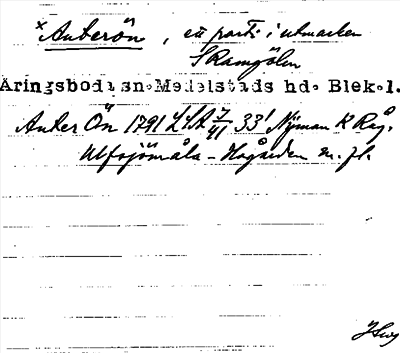 ×Ankerön, ett parti i utmarken
Skamgölen
Äringsboda sn. Medelstads hd. Blek. l.
Anker Ön 1791 LSA 7/41 33' Nyman K Råg.
Ulfsjömåla - Hogården m. fl.